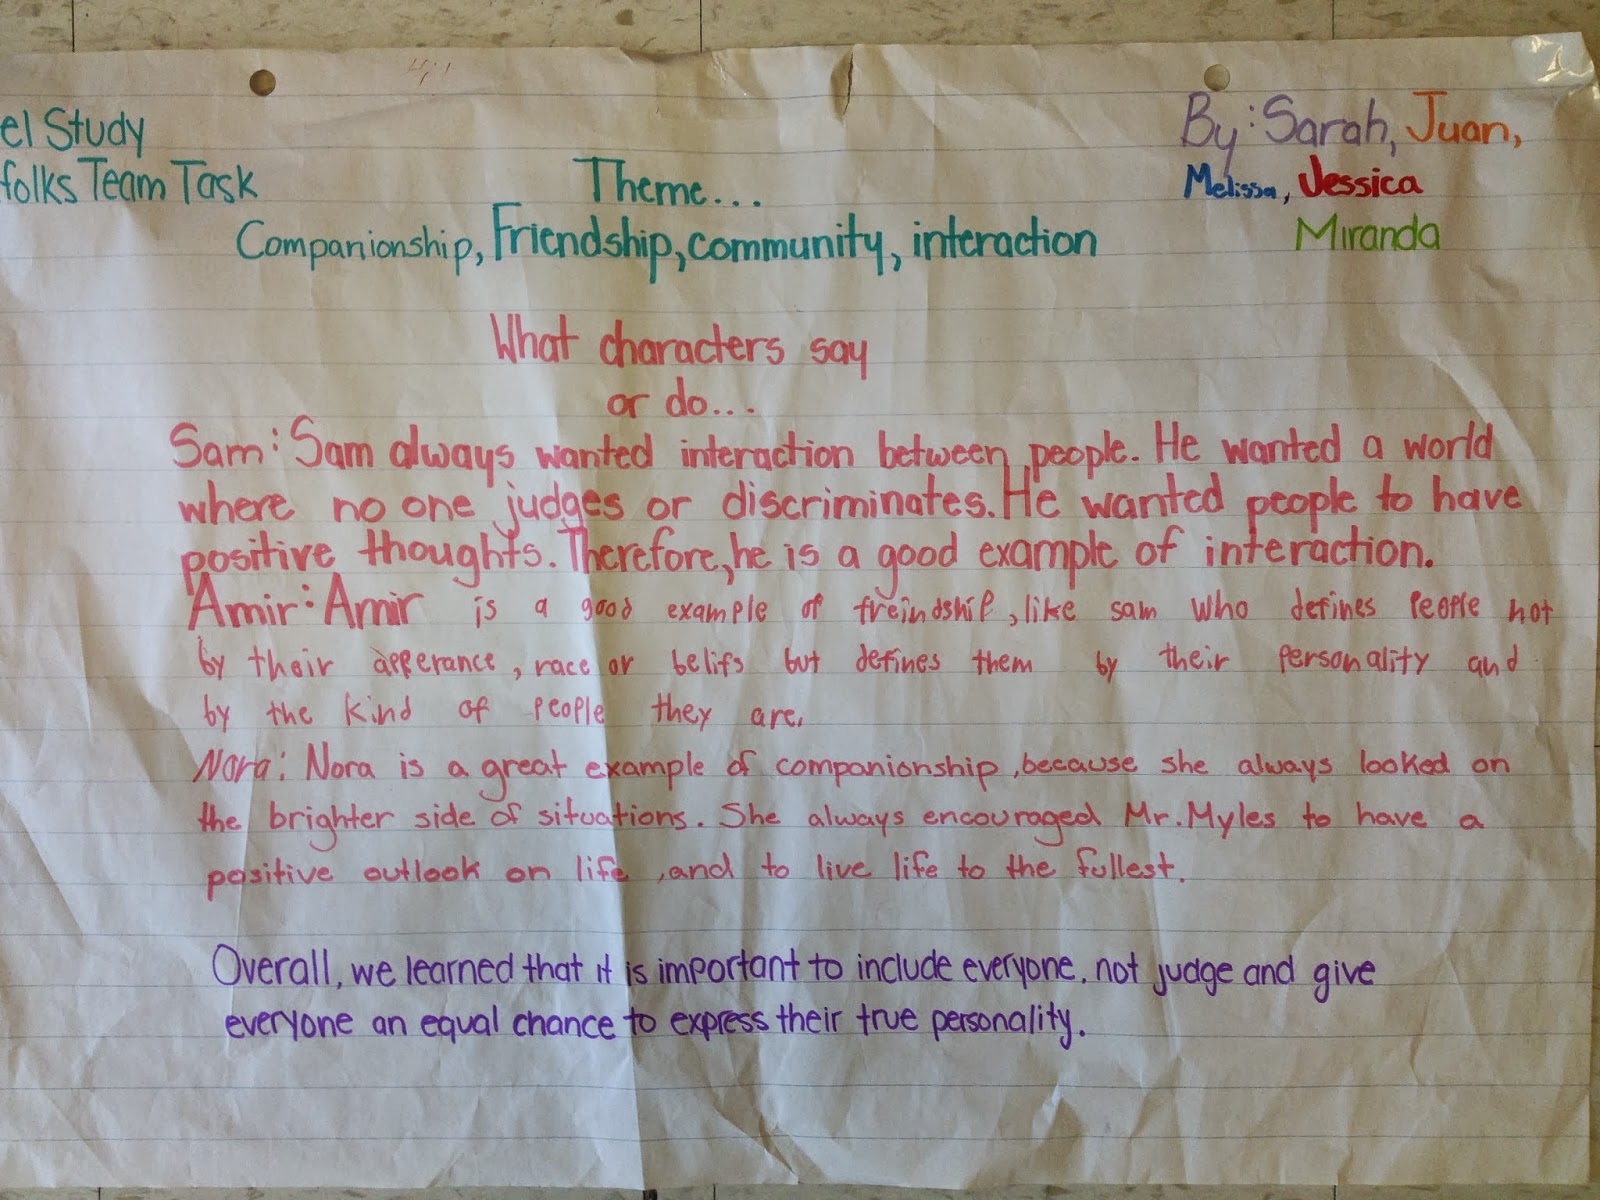 el Study
folks Team Task
By: Sarah, Juan,
Melissa, Jessica
Miranda
Theme...
Companionship, Friendship, community, interaction
What characters say
or do...
Sam: Sam always wanted interaction between people. He wanted a world
where no one judges or discriminates. He wanted people to have
positive thoughts. Therefore, he is a good example of interaction.
Amir: Amir is a good example of freindship, like sam who defines people not
by their apperance, race or belifs but defines them by their personality and
by the kind of people they are.
Nora: Nora is a great example of companionship, because she always looked on
the brighter side of situations. She always encouraged Mr. Myles to have a
positive outlook on life, and to live life to the fullest.
Overall, we learned that it is important to include everyone, not judge and give
everyone an equal chance to express their true personality.